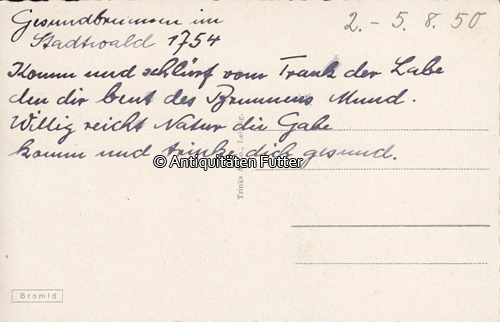 Gesundbrunnen im
Stadtwald 1754
2. - 5. 8. 50
Komm und schlürf vom Trank der Labe
den dir beut des Brunnens Mund.
Willig reicht Natur die Gabe
komm und trinke dich gesund.
© Antiquitäten Futter
Trinks & Co., Leipzig.
Bromid